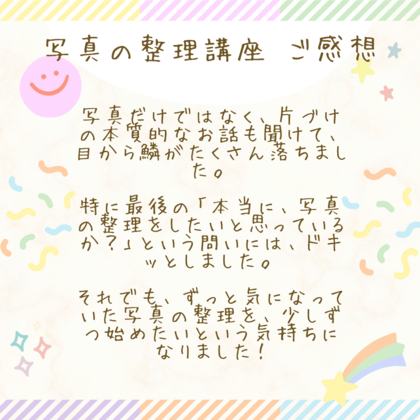 写真の整理講座 ご感想
写真だけではなく、片づけ
の本質的なお話も聞けて、
目から鱗がたくさん落ちまし
た。
特に最後の「本当に、写真
の整理をしたいと思っている
か?」という問いには、ドキ
ッとしました。
それでも、ずっと気になって
いた写真の整理を、少しず
つ始めたいという気持ちに
なりました!